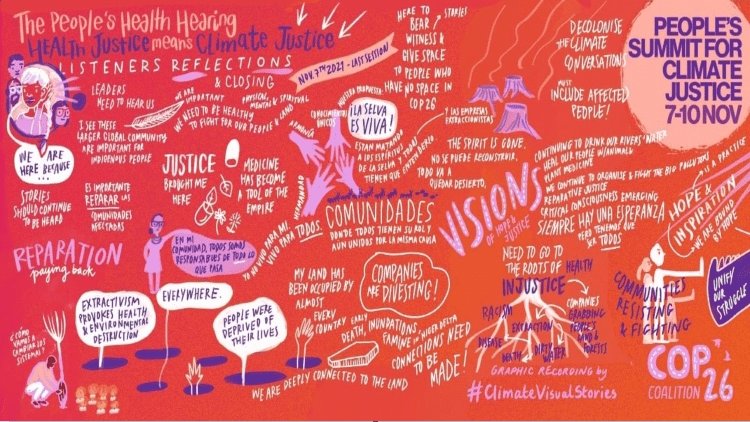 The People's Health Hearing
HEALTH JUSTICE means CLIMATE JUSTICE
LISTENERS REFLECTIONS
& CLOSING
NOV. 7TH 2021 - LAST SESSION
HERE TO
BEAR
WITNESS &
GIVE SPACE
TO PEOPLE WHO
HAVE NO SPACE IN
COP 26
STORIES
DECOLONISE
THE CLIMATE
CONVERSATIONS
MUST
INCLUDE AFFECTED
PEOPLE!
PEOPLE'S
SUMMIT FOR
CLIMATE
JUSTICE
7-10 NOV
LEADERS
NEED TO HEAR US
I SEE THESE
LARGER GLOBAL COMMUNITY
ARE IMPORTANT FOR
INDIGENOUS PEOPLE
WE ARE
IMPORTANT
PHYSICAL,
MENTAL & SPIRITUAL
WE NEED TO BE HEALTHY
TO FIGHT FOR OUR PEOPLE & LAND
WE ARE
HERE BECAUSE
...
STORIES
SHOULD CONTINUE
TO BE HEARD
ES IMPORTANTE
REPARAR LAS
COMUNIDADES
AFECTADAS
JUSTICE
BROUGHT ME
HERE
MEDICINE
HAS BECOME
A TOOL OF THE
EMPIRE
CONOCIMIENTOS
ARMONÍA
HERMANDAD
NUESTRA PROPUESTA
¡LA SELVA
ES VIVA!
ESTAN MATANDO
A LOS ESPIRITUS
DE LA SELVA Y TODOS
TIENEN QUE ENTENDERLO
Y LAS EMPRESAS
EXTRACCIONISTAS
THE SPIRIT IS GONE,
NO SE PUEDE RECONSTRUIR,
TODO VA A
QUEDAR DESIERTO,
VISIONS
OF HOPE &
JUSTICE
CONTINUING TO DRINK OUR RIVERS' WATER
HEAL OUR PEOPLE W/ANIMAL &
PLANT MEDICINE
WE CONTINUE TO ORGANISE & FIGHT THE BIG POLLUTERS
REPARATIVE JUSTICE
CRITICAL CONSCIOUSNESS EMERGING
SIEMPRE HAY UNA ESPERANZA
PERO TENEMOS QUE
SER TODOS
HOPE &
INSPIRATION
IS A PRACTICE
WE ARE BOUND
BY HOPE
REPARATION
paying back
EN MI
COMUNIDAD, TODOS SOMOS
RESPONSABLES DE TODO LO
QUE PASA
YO NO VIVO PARA MI,
VIVO PARA TODOS.
COMUNIDADES
DONDE TODOS TIENEN SU ROL Y
AÚN UNIDOS POR LA MISMA CAUSA
EXTRACTIVISM
PROVOKES HEALTH
& ENVIRONMENTAL
DESTRUCTION
EVERYWHERE.
PEOPLE WERE
DEPRIVED OF
THEIR LIVES
MY LAND HAS
BEEN OCCUPIED BY
ALMOST
EVERY
COUNTRY
COMPANIES
ARE DIVESTING!
EARLY
DEATH, INUNDATIONS,
FAMINE IN NIGER DELTA
CONNECTIONS NEED
TO BE
MADE!
WE ARE DEEPLY CONNECTED TO THE LAND
¿CÓMO
VAMOS A
CAMBIAR LOS
SISTEMAS?
NEED TO GO TO
THE ROOTS OF HEALTH
INJUSTICE
RACISM
EXTRACTION
DISEASE
DEATH
DIRTY
WATER
COMPANIES
GRABBING
PEOPLE'S
LAND &
FORESTS
COMMUNITIES
RESISTING
& FIGHTING
UNIFY
OUR
STRUGGLE
GRAPHIC RECORDING by
#ClimateVisualStories
COP
COALITION 26